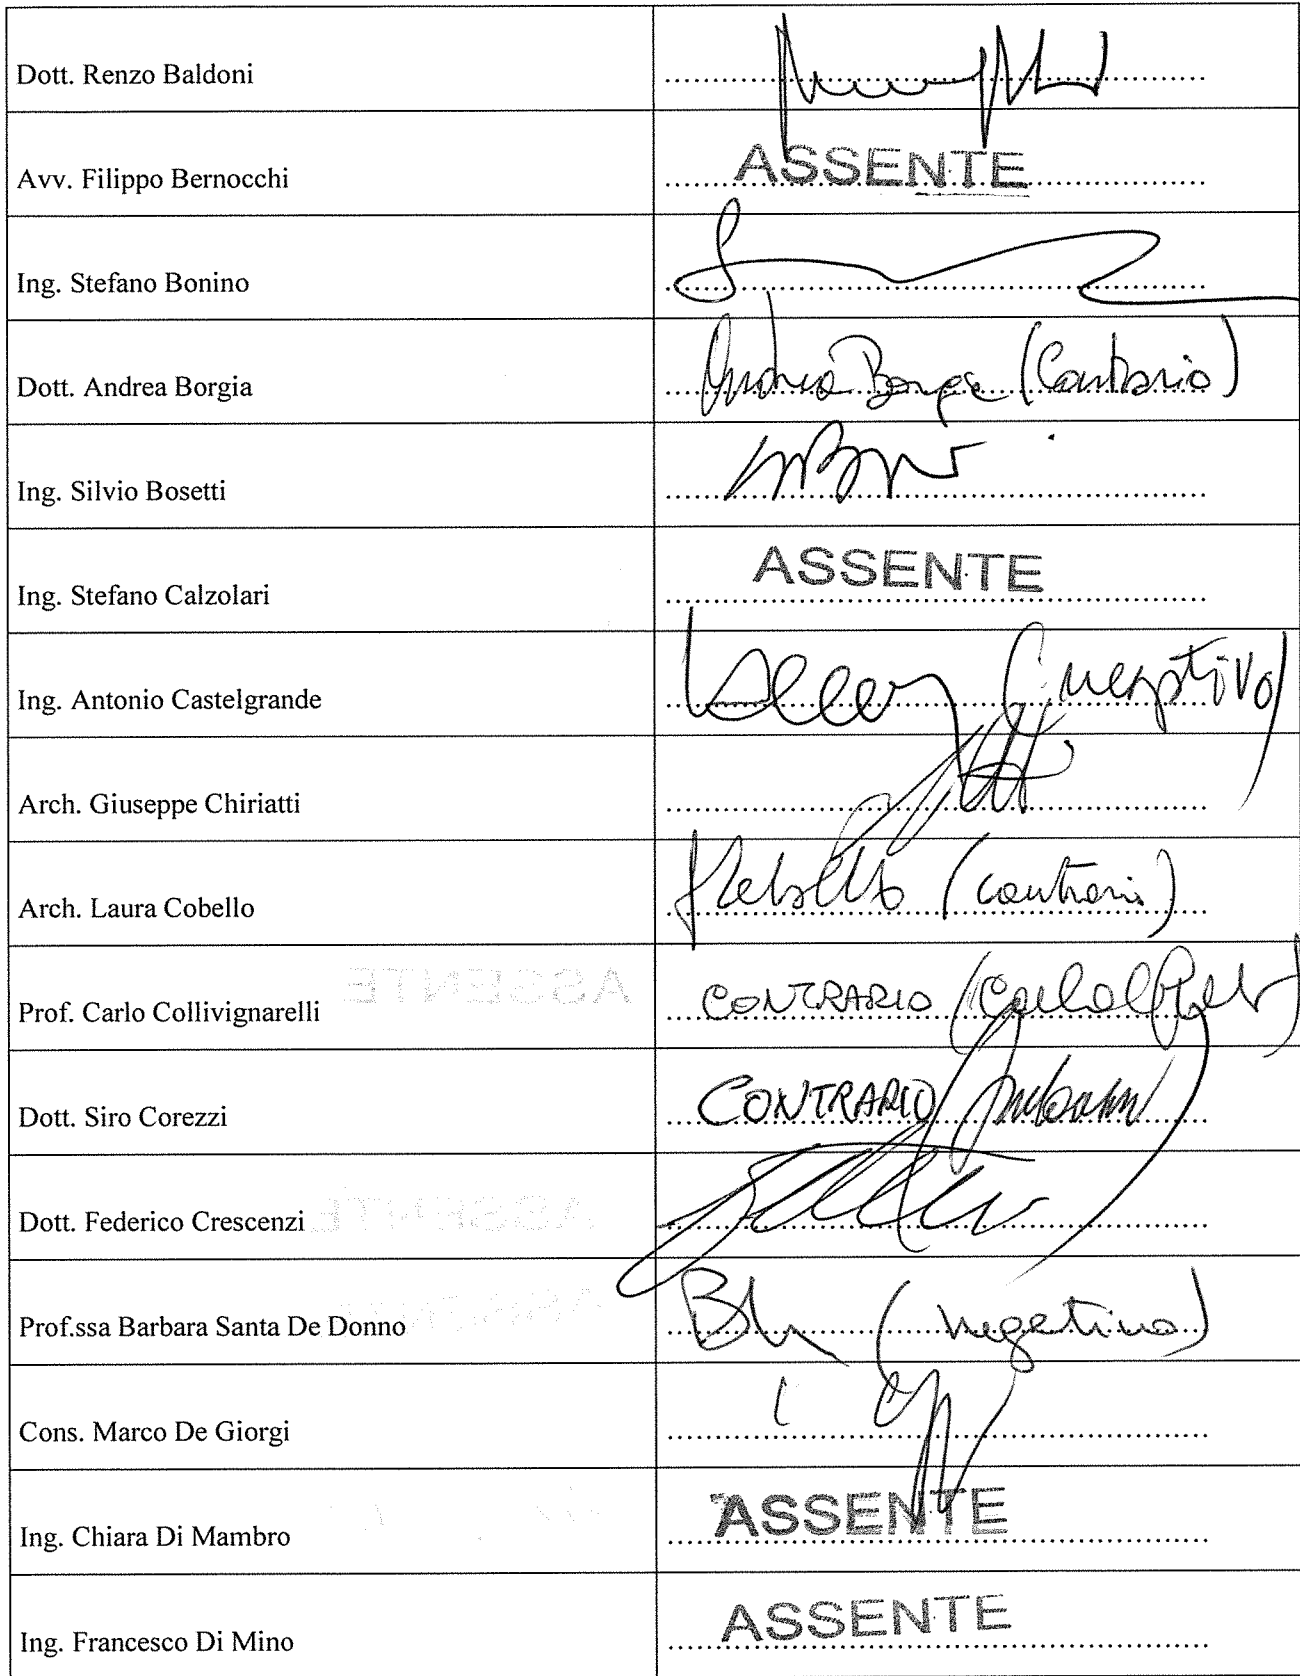 Dott. Renzo Baldoni
Avv. Filippo Bernocchi ASSENTE
Ing. Stefano Bonino
Dott. Andrea Borgia Andrea Borgia (Contrario)
Ing. Silvio Bosetti
Ing. Stefano Calzolari ASSENTE
Ing. Antonio Castelgrande (negativo)
Arch. Giuseppe Chiriatti
Arch. Laura Cobello (contrario)
Prof. Carlo Collivignarelli ASSENTE CONTRARIO
Dott. Siro Corezzi CONTRARIO
Dott. Federico Crescenzi ASSENTE
Prof.ssa Barbara Santa De Donno ASSENTE (negativo)
Cons. Marco De Giorgi
Ing. Chiara Di Mambro ASSENTE
Ing. Francesco Di Mino ASSENTE